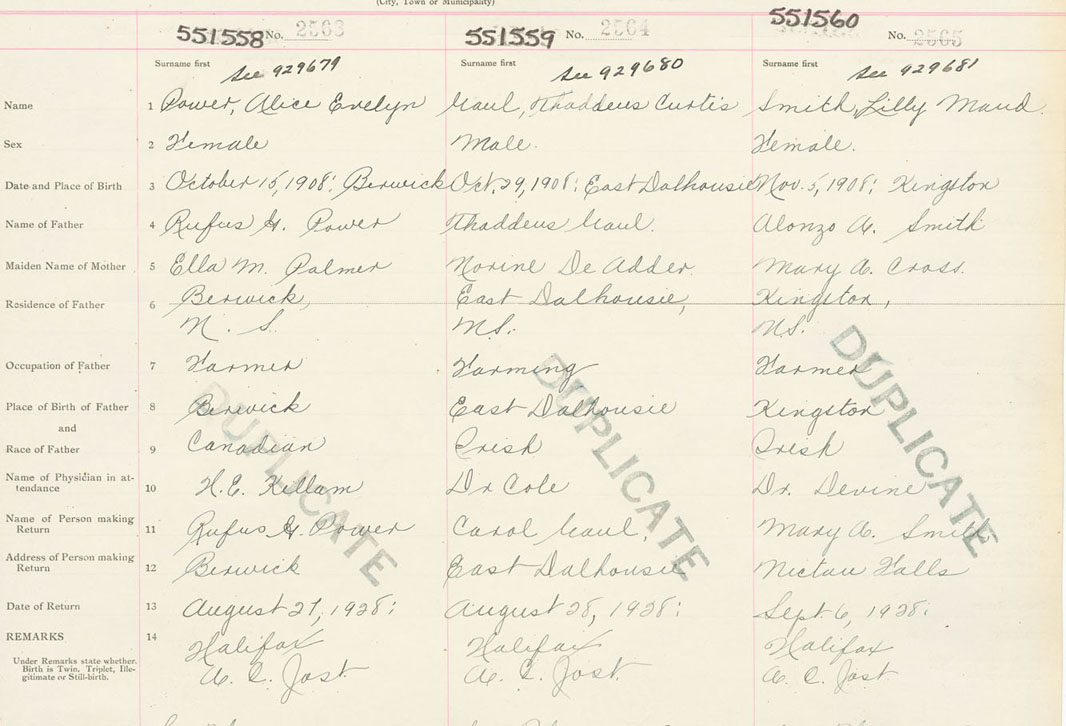 (City, Town or Municipality)
551558 No. 2563 551559 No. 2564 551560 No. 2565
Surname first Surname first Surname first
See 929679 See 929680 See 929681
Name 1 Power, Alice Evelyn Gaul, Thaddeus Curtis Smith, Lilly Maud
Sex 2 Female Male. Female.
Date and Place of Birth 3 October 15, 1908: Berwick Oct. 29, 1908: East Dalhousie Nov. 5, 1908: Kingston
Name of Father 4 Rufus G. Power Thaddeus Gaul. Alonzo A. Smith
Maiden Name of Mother 5 Ella M. Palmer Norine De Adder. Mary A. Cross.
Residence of Father 6 Berwick, East Dalhousie, Kingston,
N. S. N.S. N.S.
Occupation of Father 7 Farmer Farming Farmer
Place of Birth of Father 8 Berwick East Dalhousie Kingston
and
Race of Father 9 Canadian Irish Irish
Name of Physician in at-
tendance 10 H.E. Killam Dr Cole Dr. Devine
Name of Person making
Return 11 Rufus G. Power Carol Gaul. Mary A. Smith
Address of Person making
Return 12 Berwick East Dalhousie Nictau Falls
Date of Return 13 August 27, 1928: August 28, 1928: Sept. 6, 1928:
REMARKS 14 Halifax Halifax Halifax
Under Remarks state whether
Birth is Twin, Triplet, Ille-
gitimate or Still-birth.
A. C. Jost. A. C. Jost. A. C. Jost
DUPLICATE DUPLICATE DUPLICATE